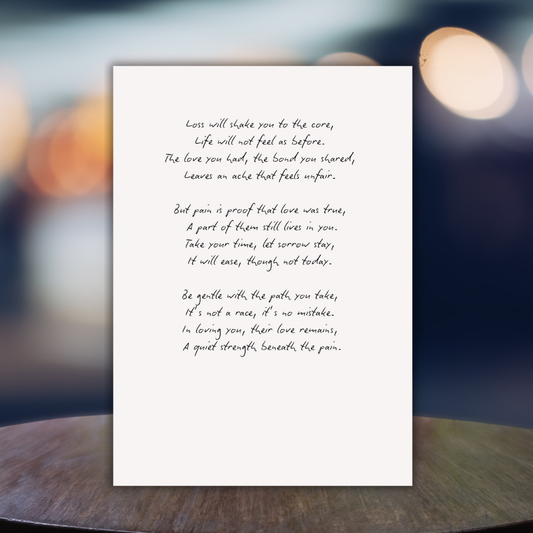 Loss will shake you to the core,
Life will not feel as before.
The love you had, the bond you shared,
Leaves an ache that feels unfair.
But pain is proof that love was true,
A part of them still lives in you.
Take your time, let sorrow stay,
It will ease, though not today.
Be gentle with the path you take,
It's not a race, it's no mistake.
In loving you, their love remains,
A quiet strength beneath the pain.